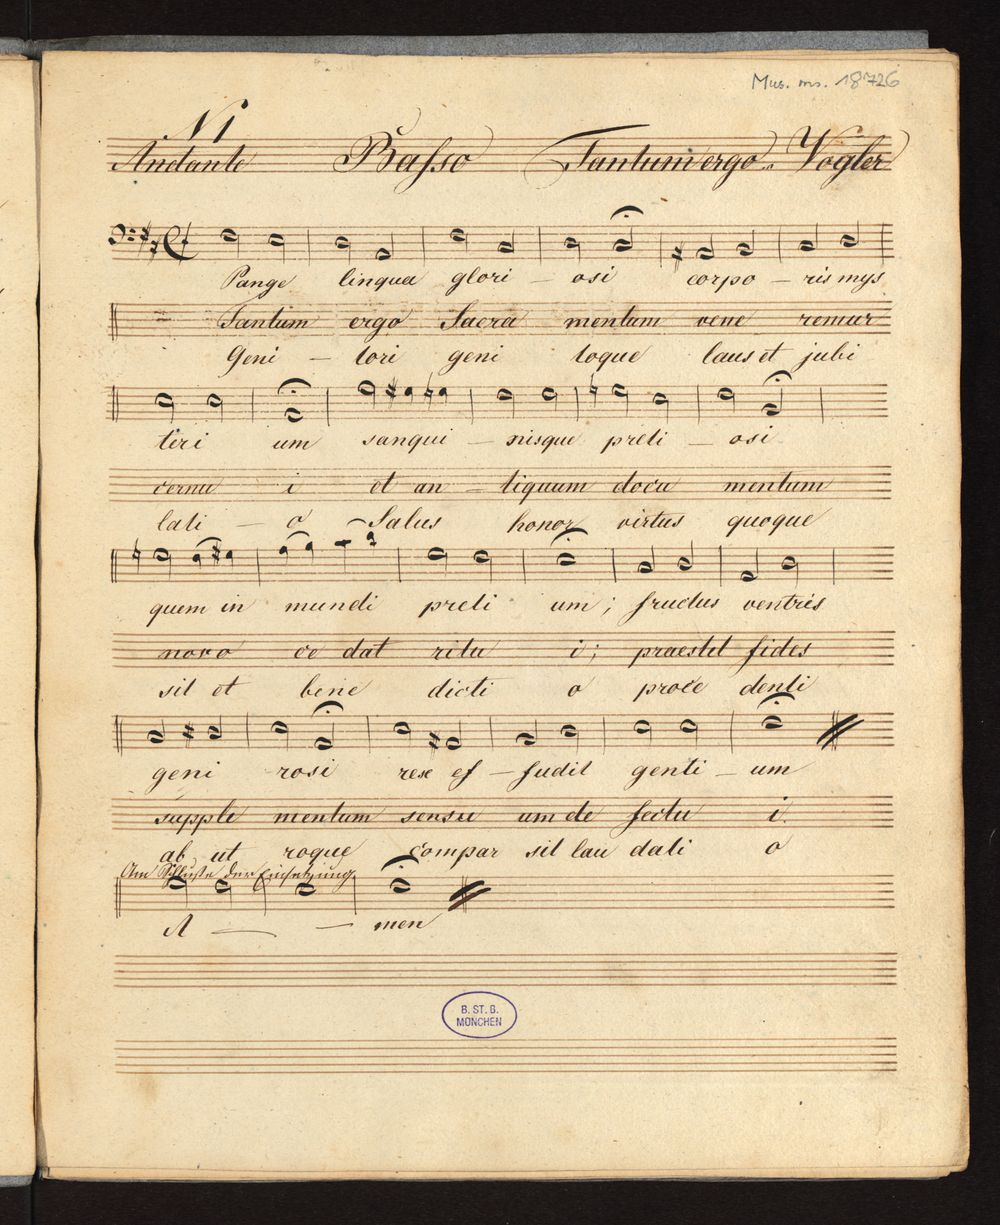 Mus. ms. 18726
N 1
Andante Basso Tantum ergo. Vogler
Pange lingua glori - osi corpo - ris mys
Tantum ergo Sacra mentum vene remur
Geni - tori geni toque laus et jubi
teri um sangui - nisque preti - osi
cernu i et an - tiquum docu mentum
lati - o Salus honor virtus quoque
quem in mundi preti um; fructus ventris
novo ce dat ritu i; praestet fides
sit et bene dicti o proce denti
geni rosi rex ef - fudit genti - um
supple mentum sensu um de fectu i.
ab ut roque compar sit lau dati o
Am Schluße der Einsetzung.
A - - men
B. ST. B.
MÜNCHEN